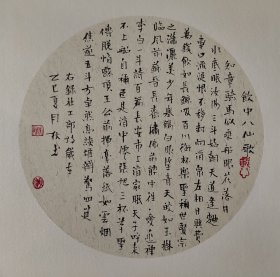 飲中八仙歌
知章騎馬似乘船眼花落井
水底眠汝陽三斗始朝天道逢麴
車口流涎恨不移封向酒泉左相日興費
萬錢飲如長鯨吸百川銜杯樂聖稱世賢宗
之瀟灑美少年舉觴白眼望青天皎如玉樹
臨風前蘇晉長齋繡佛前醉中往往愛逃禪
李白一斗詩百篇長安市上酒家眠天子呼來
不上船自稱臣是酒中仙張旭三杯草聖
傳脫帽露頂王公前揮毫落紙如雲煙
焦遂五斗方卓然高談雄辯驚四筵
右錄杜工部詩歲在
乙巳夏月書